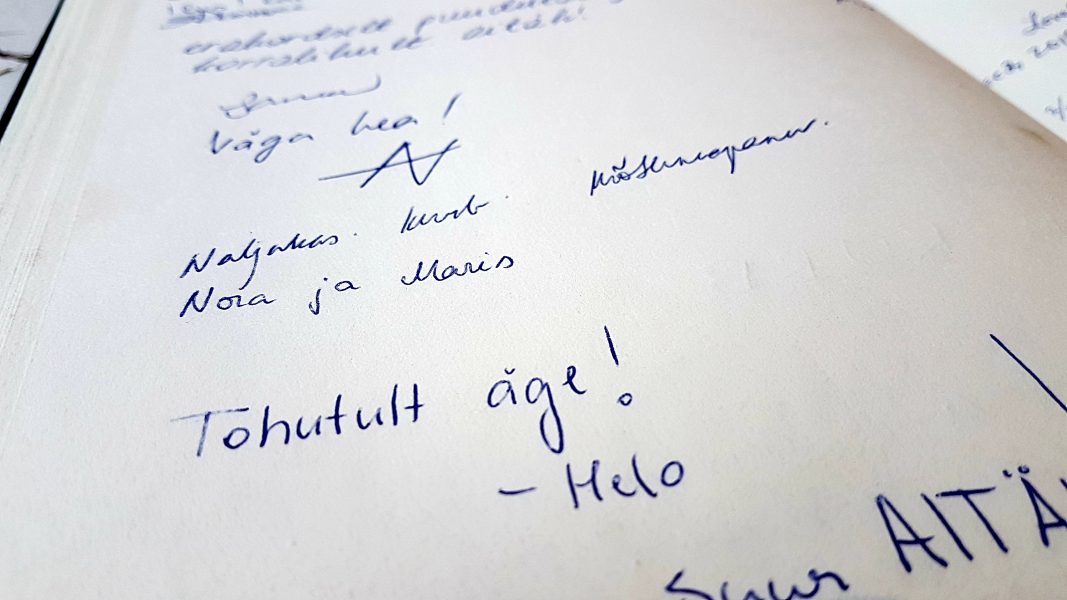 erakordselt
korralikult aitäh!
Väga hea!
Naljakas. kurb. mõtlemapanev.
Nora ja Maris
Tohutult äge!
- Helo
Suur AITÄ